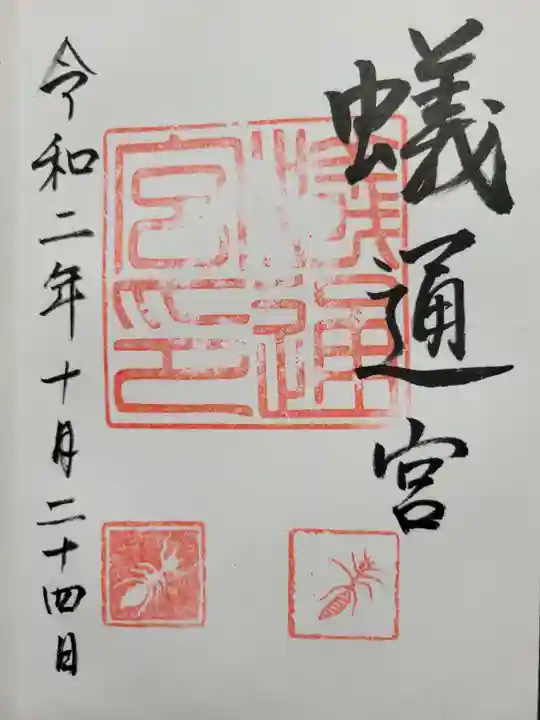 蟻通宮
蟻通
宮印
令和二年十月二十四日